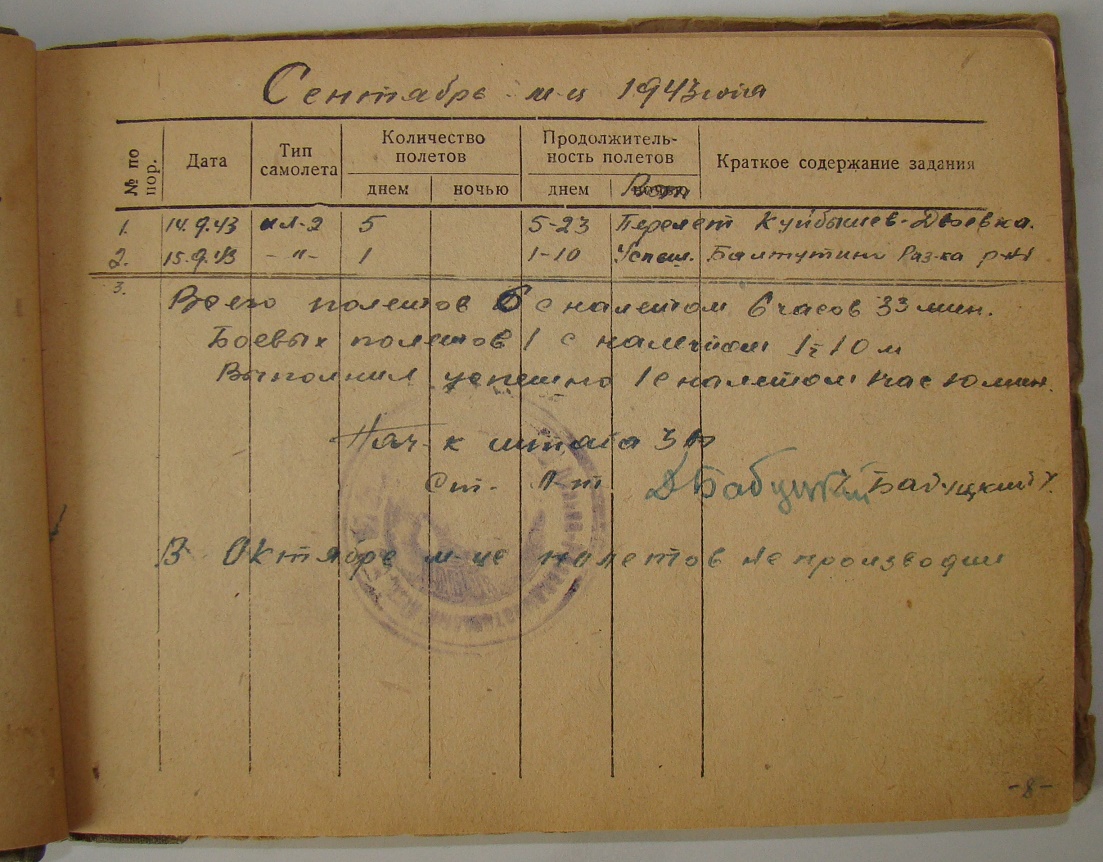 Сентябрь м-ц 1943 года
№ по пор. Дата Тип самолета Количество полетов Продолжитель-ность полетов Краткое содержание задания
днем ночью днем
1. 14.9.43 ил-2 5 5-23 Перелет Куйбышев-Двоевка.
2. 15.9.43 -"- 1 1-10 Успеш. Балтутино Раз-ка р-на
3.
Всего полетов 6 с налетом 6 часов 33 мин.
Боевых полетов 1 с налетом 1ч 10 м
Выполнил успешно 1 с налетом 1 час 10 мин.
Нач-к штаба
Ст. Л-т Бабуцкий
В Октябре м-це полетов не производил
-8-